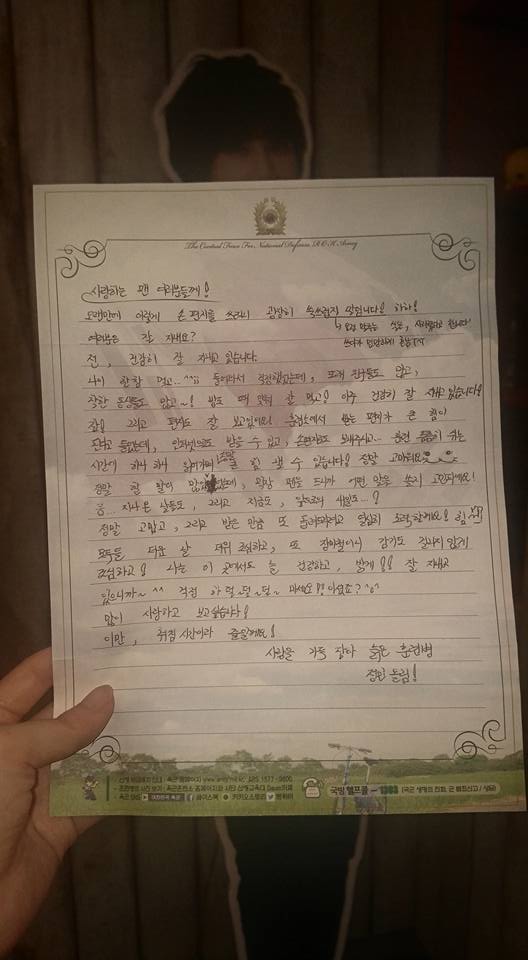 The Central Force For National Defense, R.O.K Army
사랑하는 팬 여러분들께!
오랜만에 이렇게 손 편지를 쓰려니 굉장히 쑥쓰럽지 말입니다! 하하!
여러분은 잘 지내요?
전, 건강히 잘 지내고 있습니다.
나이 한참 먹고..^^;; 들어와서 걱정했었는데, 또래 친구들도 있고,
착한 동생들도 있고~! 밥도 때 맞춰 잘 먹고! 아주 건강히 잘 지내고 있습니다!
참! 그리고 편지도 잘 보고있어요! 훈련소에서 받는 편지가 큰 힘이
된다고 들었는데, 인터넷으로도 받을 수 있고, 손편지도 보내주시고... 훈련 틈틈이 쉬는
시간에 하나 하나 읽어가며 정말 힘 낼 수 있습니다! 정말 고마워요
정말 할 말이 많았는데, 막상 펜을 드니까 어떤 말을 쓸지 고민되네요!
음.. 지나온 날들도, 그리고 지금도, 앞으로의 시간도..!
정말 고맙고, 그리고 받은 만큼 또 돌려드리려고 열심히 노력할게요! 힘
모두들 더운 날 더위 조심하고, 또 장마철이니 감기도 걸리지 않게
조심하고! 나는 이 곳에서도 늘 건강하고, 밝게!! 잘 지내고
있으니까~ ^^ 걱정 하덜~덜~덜~ 마세요!! 아셨죠? ^o^
많이 사랑하고 보고싶습니다!
이만, 취침 시간이라 줄일게요!
사랑을 가득 담아 늙은 훈련병
정민 올림!
육군 홈페이지 www.army.mil.kr, ARS 1577-
페이스북 카카오스토리 트위터
국방헬프콜 - 1303 (국군 생명의 전화, 군 범죄신고 / 상담)